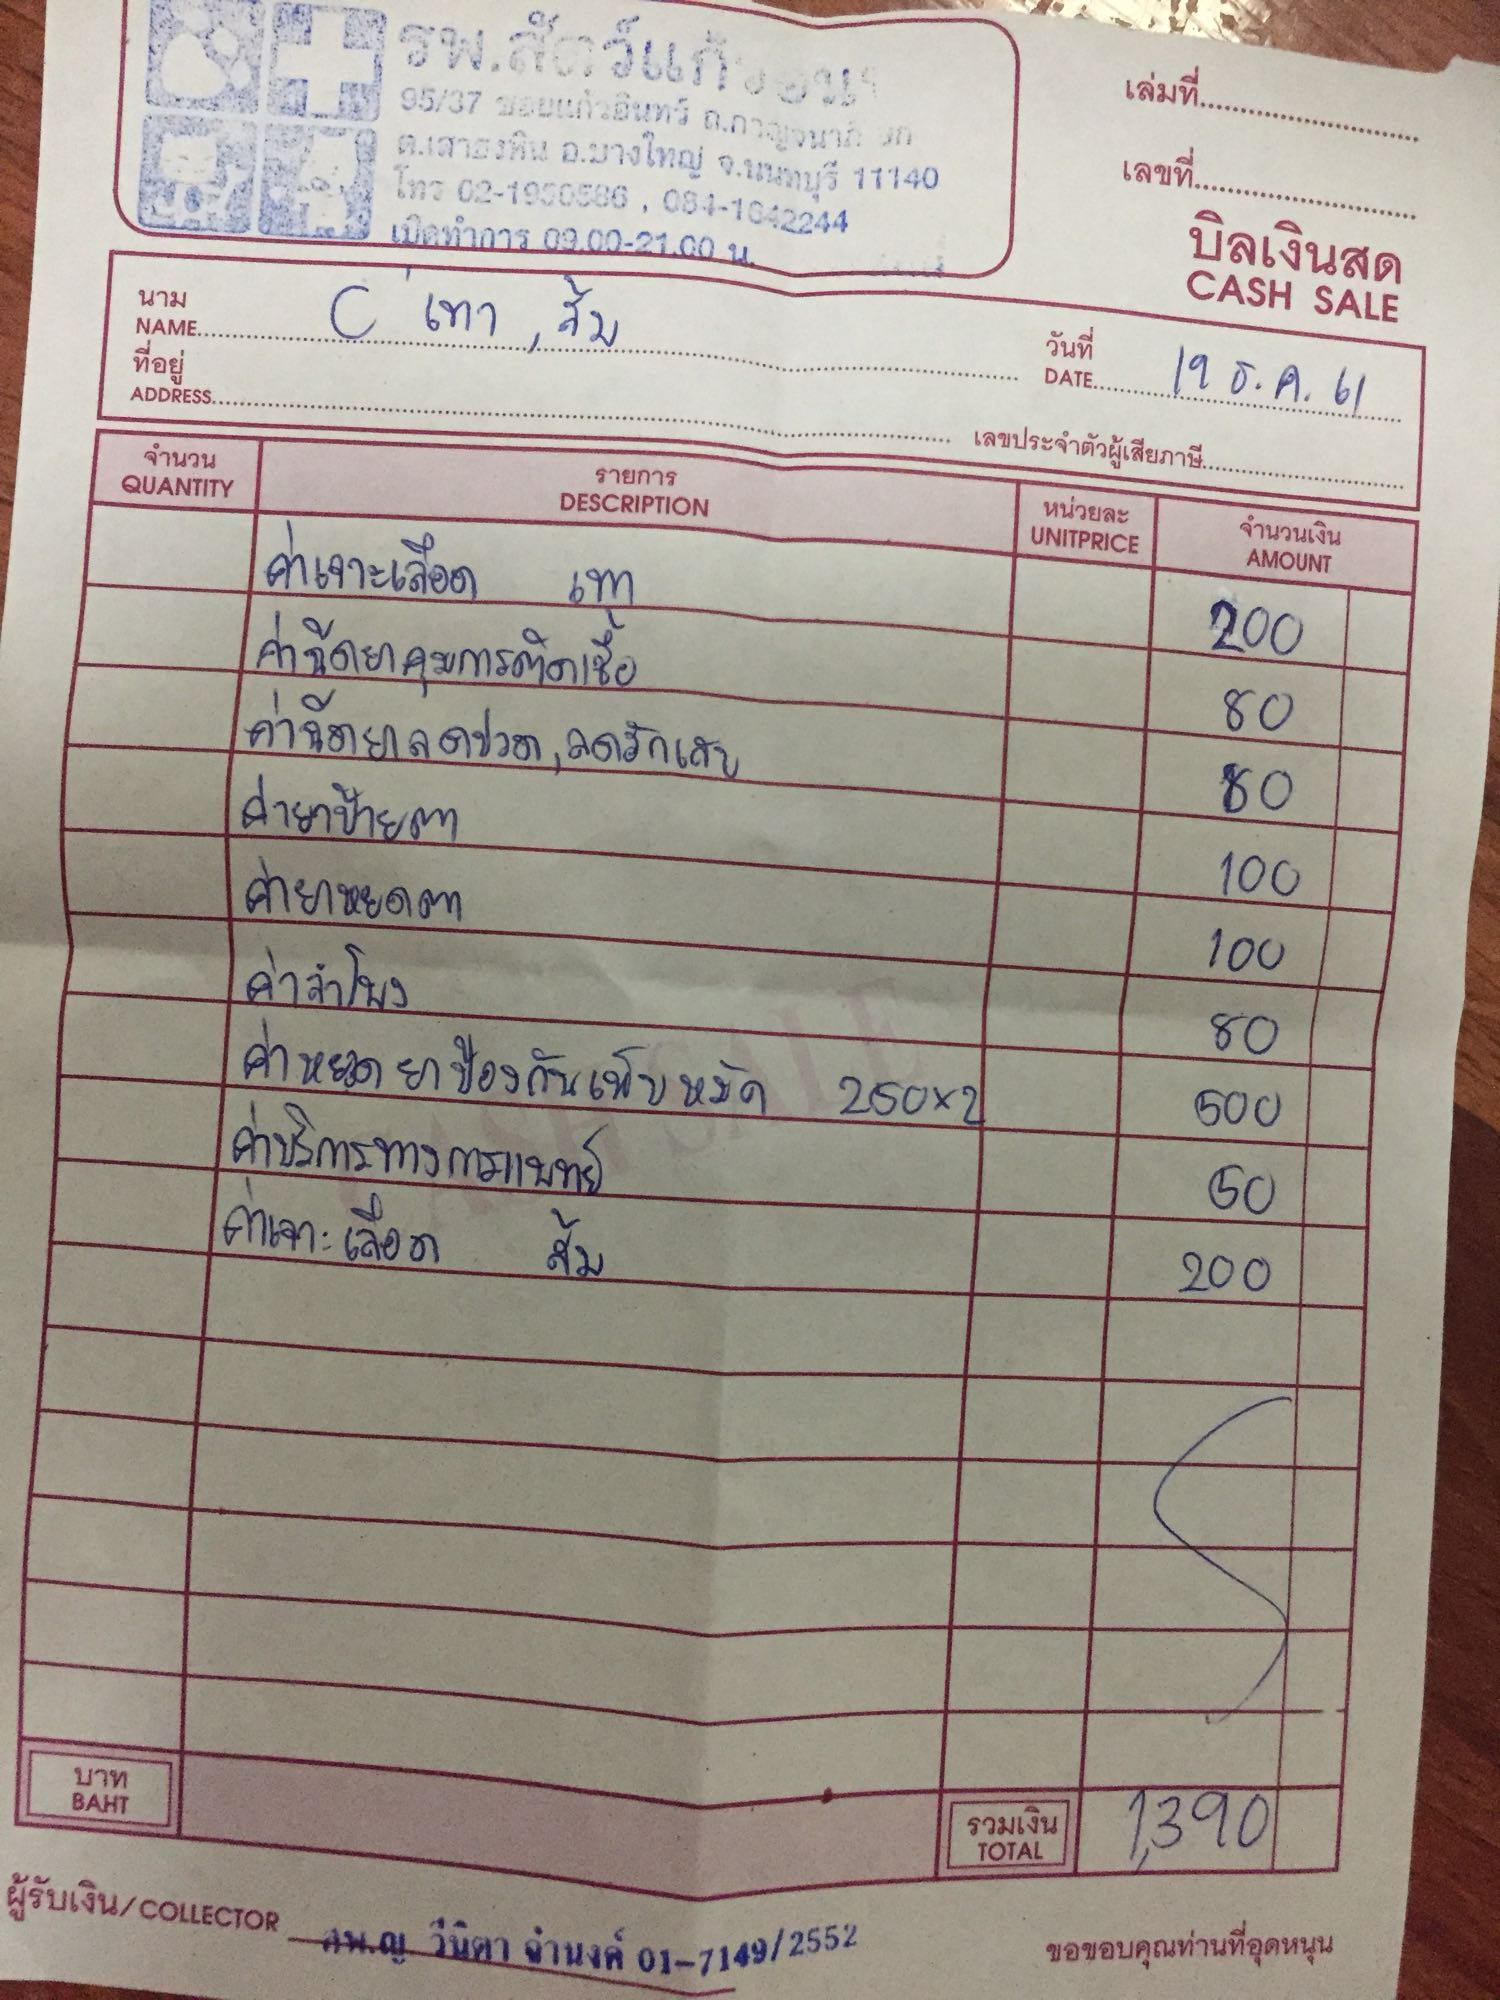 รพ.สัตว์แก้วอินทร์
95/37 ซอยแก้วอินทร์ ถ.กาญจนาภิเษก
ต.เสาธงหิน อ.บางใหญ่ จ.นนทบุรี 11140
โทร 02-1950586 , 084-1642244
เปิดทำการ 09.00-21.00 น.
เล่มที่
เลขที่
บิลเงินสด
CASH SALE
นาม
NAME C เทา , ส้ม
วันที่
DATE 19 ธ.ค. 61
ที่อยู่
ADDRESS
เลขประจำตัวผู้เสียภาษี
จำนวน รายการ หน่วยละ จำนวนเงิน
QUANTITY DESCRIPTION UNITPRICE AMOUNT
ค่าเจาะเลือด เทา 200
ค่าฉีดยาคุมการติดเชื้อ 80
ค่าฉีดยาลดปวด,ลดอักเสบ 80
ค่ายาป้ายตา 100
ค่ายาหยดตา 100
ค่าลำโพง 80
ค่าหยดยาป้องกันเห็บหมัด 250x2 500
ค่าบริการทางการแพทย์ 50
ค่าเจาะเลือด ส้ม 200
CASH SALE
บาท
BAHT
รวมเงิน
TOTAL 1,390
ผู้รับเงิน/COLLECTOR สพ.ญ วินิตา จำนงค์ 01-7149/2552
ขอขอบคุณท่านที่อุดหนุน